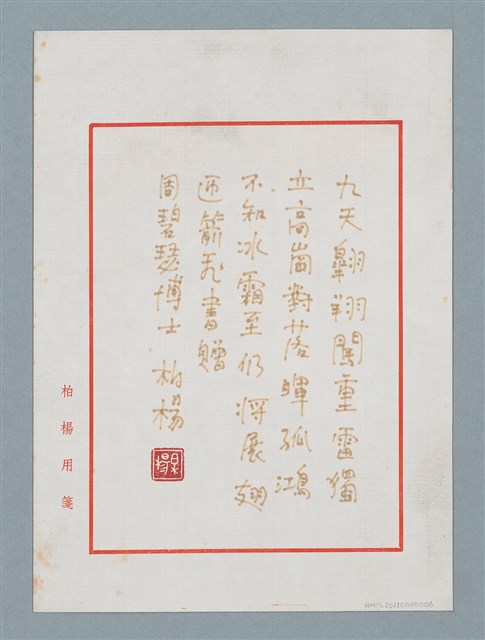 九天翱翔闖重雷獨
立高崗對落暉孤鴻
不知冰霜至仍將展翅
迎箭飛書贈
周碧瑟博士 柏楊
柏楊用箋
NMTL20110020006